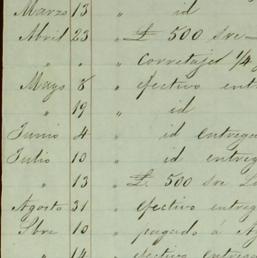 Marzo 13 " id
Abril 23 " £ 500 sre
" " " corretaje 1/4
Mayo 8 " efectivo entr
" 19 " id
Junio 4 " id entrega
Julio 10 " id entreg
" 13 " £ 500 sre L
Agosto 31 " efectivo entreg
9bre 10 " pagado á Ag
" 14 " efectivo entrega